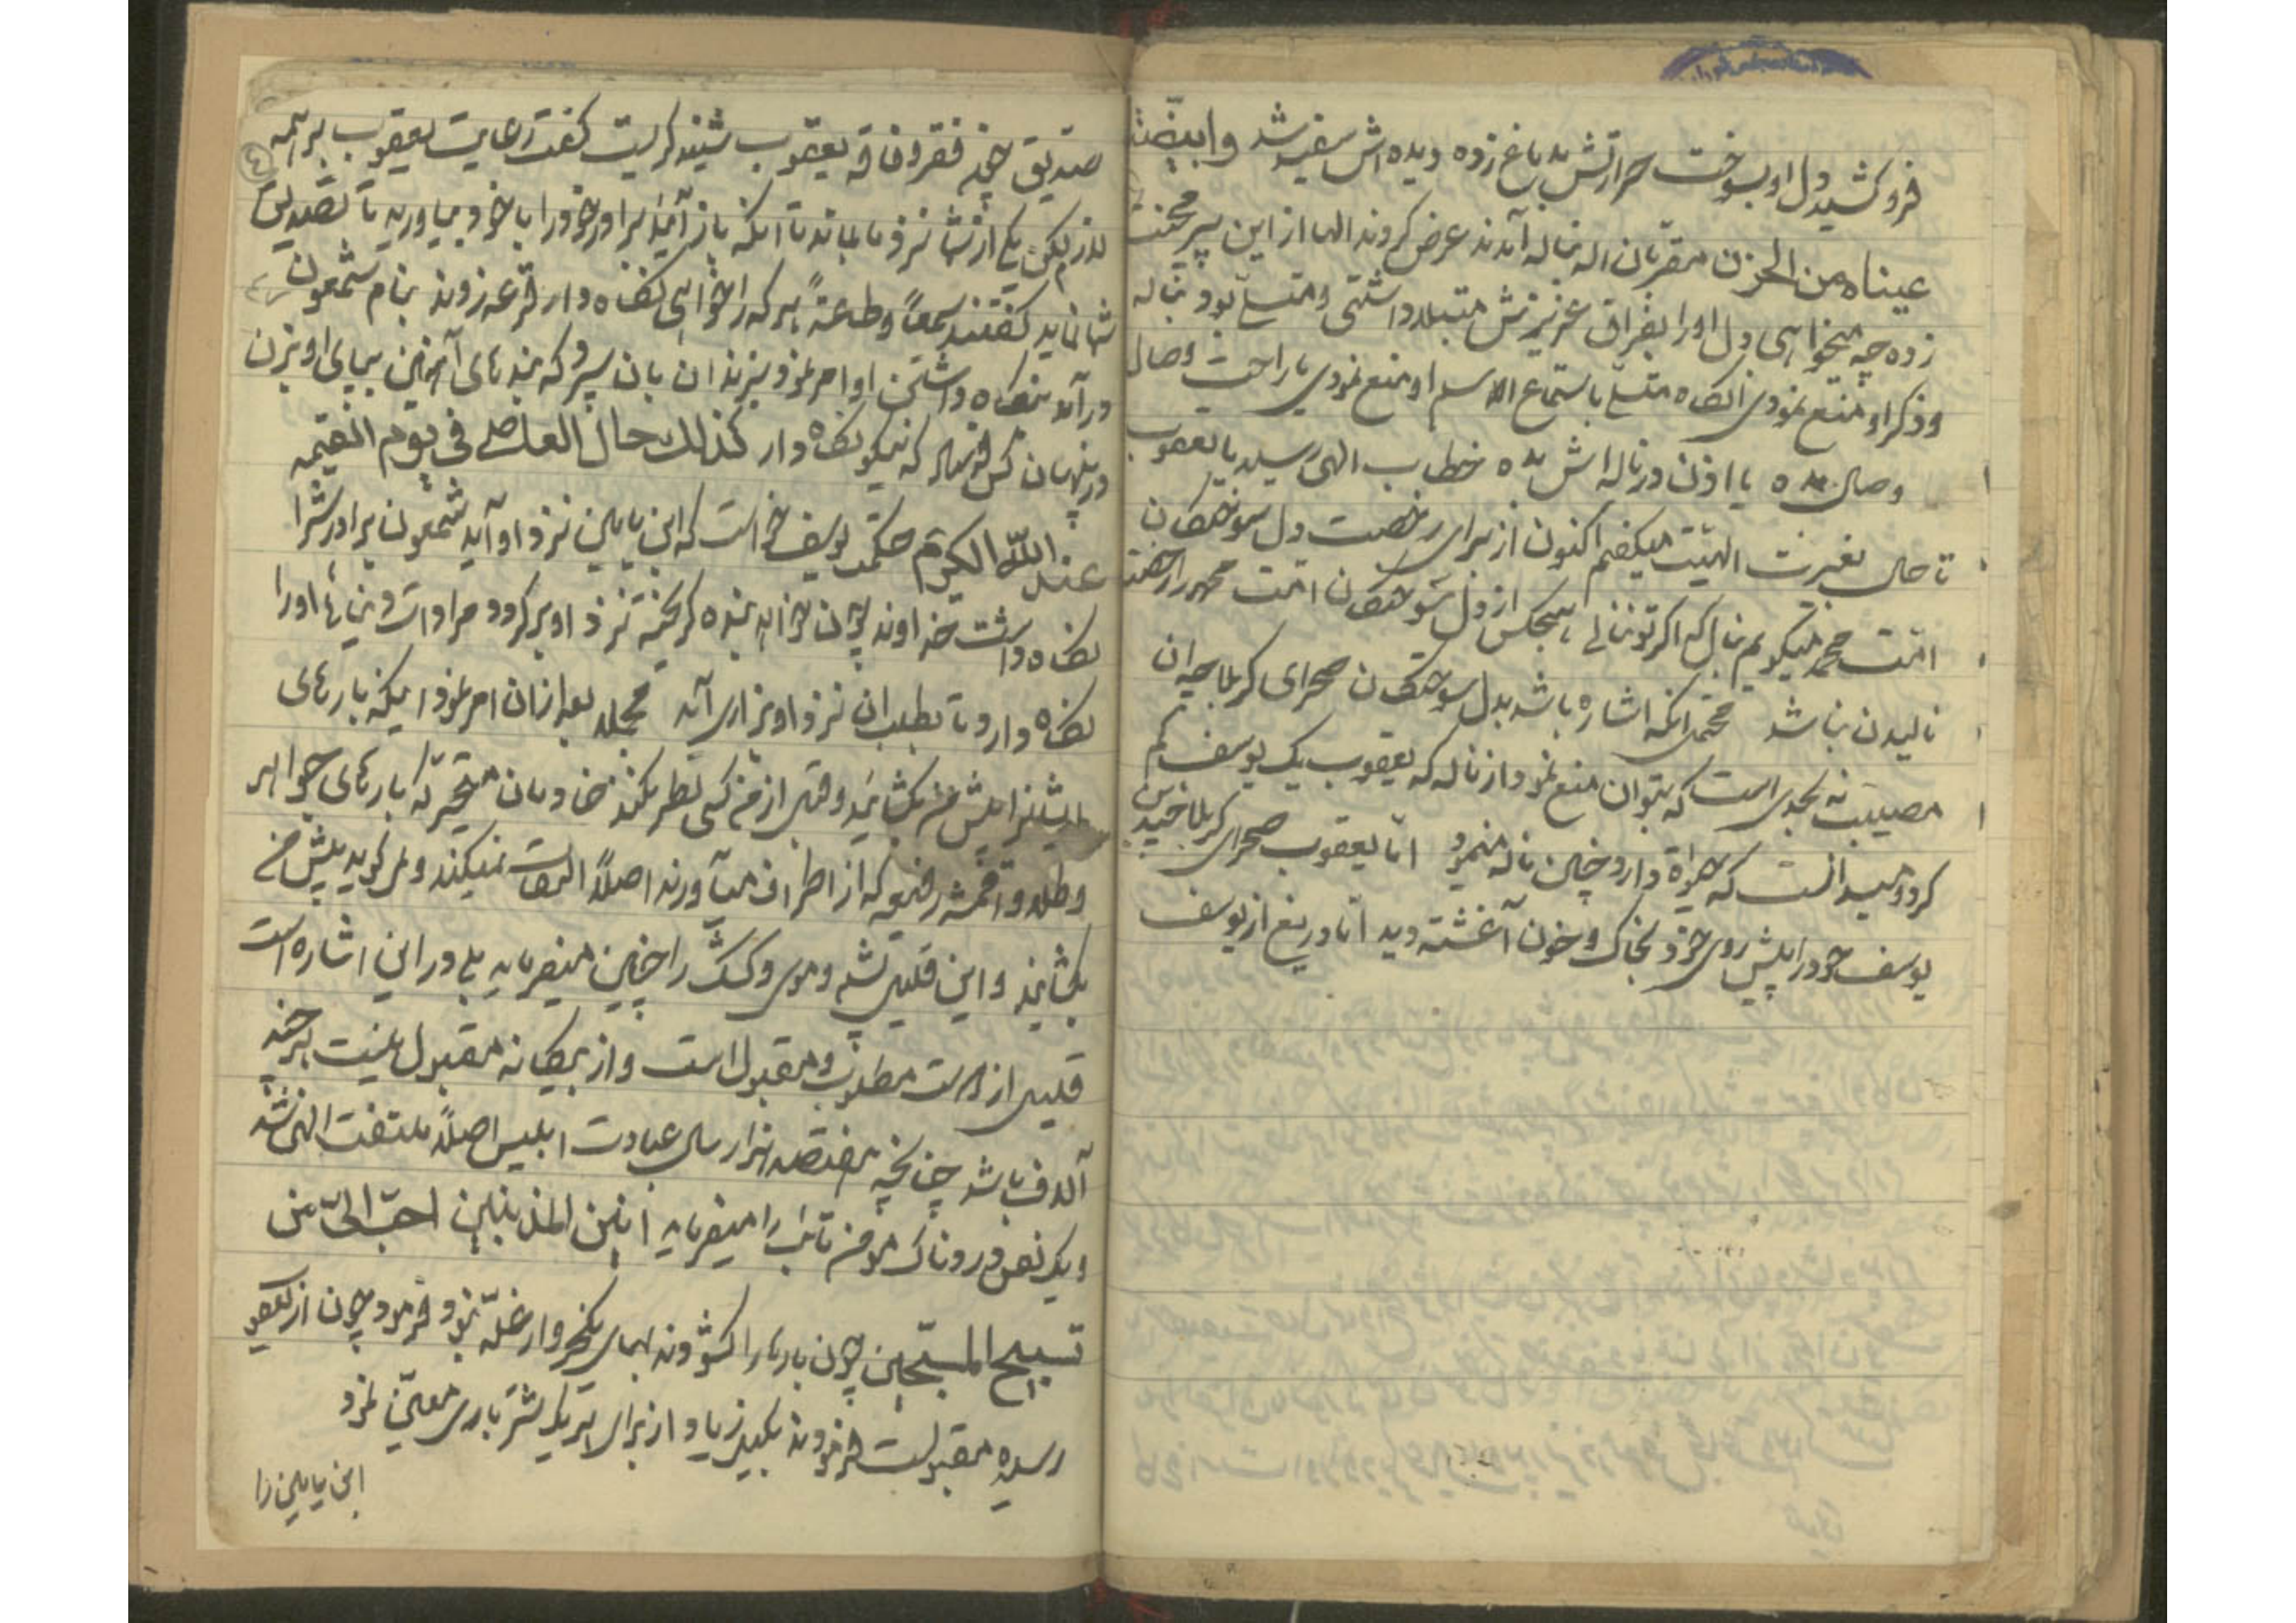 فروکشید دل او بسوخت حرارتش بدماغ زده دیده اش سفید شد وابیضت
عیناه من الحزن مقربان اله بناله آمدند عرض کردند الها از این پیر محنت
زده چه میخواهی دل او را بفراق عزیزش مبتلا داشتی و متسلی بود بناله
و ذکر او منع نمودی انکاه متسلی باستماع الاسم او منع نمودی یا راحت وصال
وصال بده یا اذن در ناله اش بده خطاب الهی رسید یا یعقوب
تا حال بغیرت الهیت میکفتم اکنون از برای رخصت دل سوختکان
امت محمد میکویم بنال که اکر تو ننالی هیچکس از دل سوختکان امت محمد را رخصت
نالیدن نباشد محتمل انکه اشاره باشد بدل سوختکان صحرای کربلا چه ان
مصیبت نه بحدی است که بتوان منع نمود از ناله که یعقوب یک یوسف کم
کرد و میدانست که حیوة دارد چنین ناله مینمود اما یعقوب صحرای کربلا چندین
یوسف خود را پیش روی خود بخاک و خون آغشته دید اما دریغ از یوسف
صدیق چون فقر و فاقه یعقوب شنید کریست کفت رعایت یعقوب بر همه
لازم لیکن یکی از شما نزد ما بماند تا انکه باز آئید برادر خود را با خود بیاورید تا تصدیق
شما نماید کفتند سمعاً و طاعةً هر که را خواهی نکاه دار قرعه زدند بنام شمعون
در آمد بنکاه داشتن او امر نمود بزندان بان سپرد که بندهای آهنین بپای او بزن
در پنهان کس فرستاد که نیکو نکاه دار کذلک حال العاصی فی یوم القیمه
عند الله الکریم حکمت یوسف خواست که ابن یامین نزد او آید شمعون برادرش را
نکاه داشت خداوند چون خواهد بنده کریخته نزد او بر کردد مرادات دنیائی او را
نکاه دارد تا بطلب ان نزد او بزاری آید مجمله بعد از ان امر نمود اینکه بارهای
ایشانرا پیش من بکشائید وقتی از من کسی نظر نکند خادمان متحیر که بارهای جواهر
و طلا و اقمشه رفیعه که از اطراف می آورند اصلاً التفات نمیکند و می کوید پیش من
بکشائید و این قلیل پشم و موی و کشک را چنین میفرماید بلی در این اشاره است
قلیل از دوست مطلوب و مقبول است و از بیکانه مقبول نیست هر چند
آلاف باشد چنانچه هفتصد هزار سال عبادت ابلیس اصلاً ملتفت الهی نشد
و یک نفس دردناک مؤمن تائب را میفرماید انین المذنبین احب الی من
تسبیح المسبحین چون بارها را کشودند بهای یکخروار غله نبود فرمود چون از یعقوب
رسیده مقبولست فرمودند بکیل زیاد از برای هر یک شتر باری معین نمود
ابن یامین را